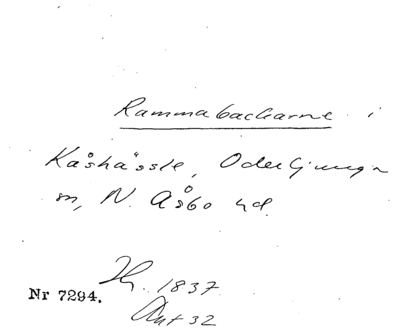 Rammabackarne i
Kåshässle, Oderljunga
sn, N. Åsbo hd.
Nr 7294.
1837
Ant 32